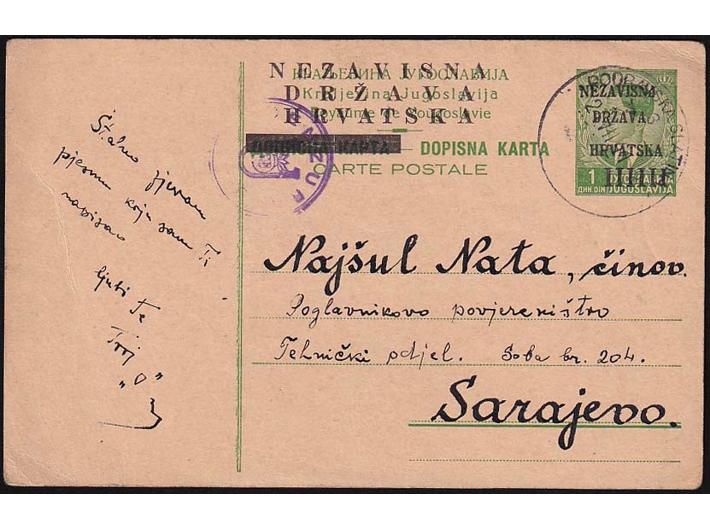 NEZAVISNA
DRŽAVA
HRVATSKA
КРАЉЕВИНА ЈУГОСЛАВИЈА
Kraljevina Jugoslavija
Royaume de Yougoslavie
DOPISNA KARTA
CARTE POSTALE
NEZAVISNA
DRŽAVA
HRVATSKA
1
ДИН. DIN.
ЈУГОСЛАВИЈА
JUGOSLAVIJA
PODRAVSKA SLATINA
Stalno pjevam
pjesmu koju sam Ti
napisao
ljubi Te
Tvoj
„O”
Najšul Nata, činov.
Poglavnikovo povjereništvo
Tehnički odjel. Soba br. 204.
Sarajevo.